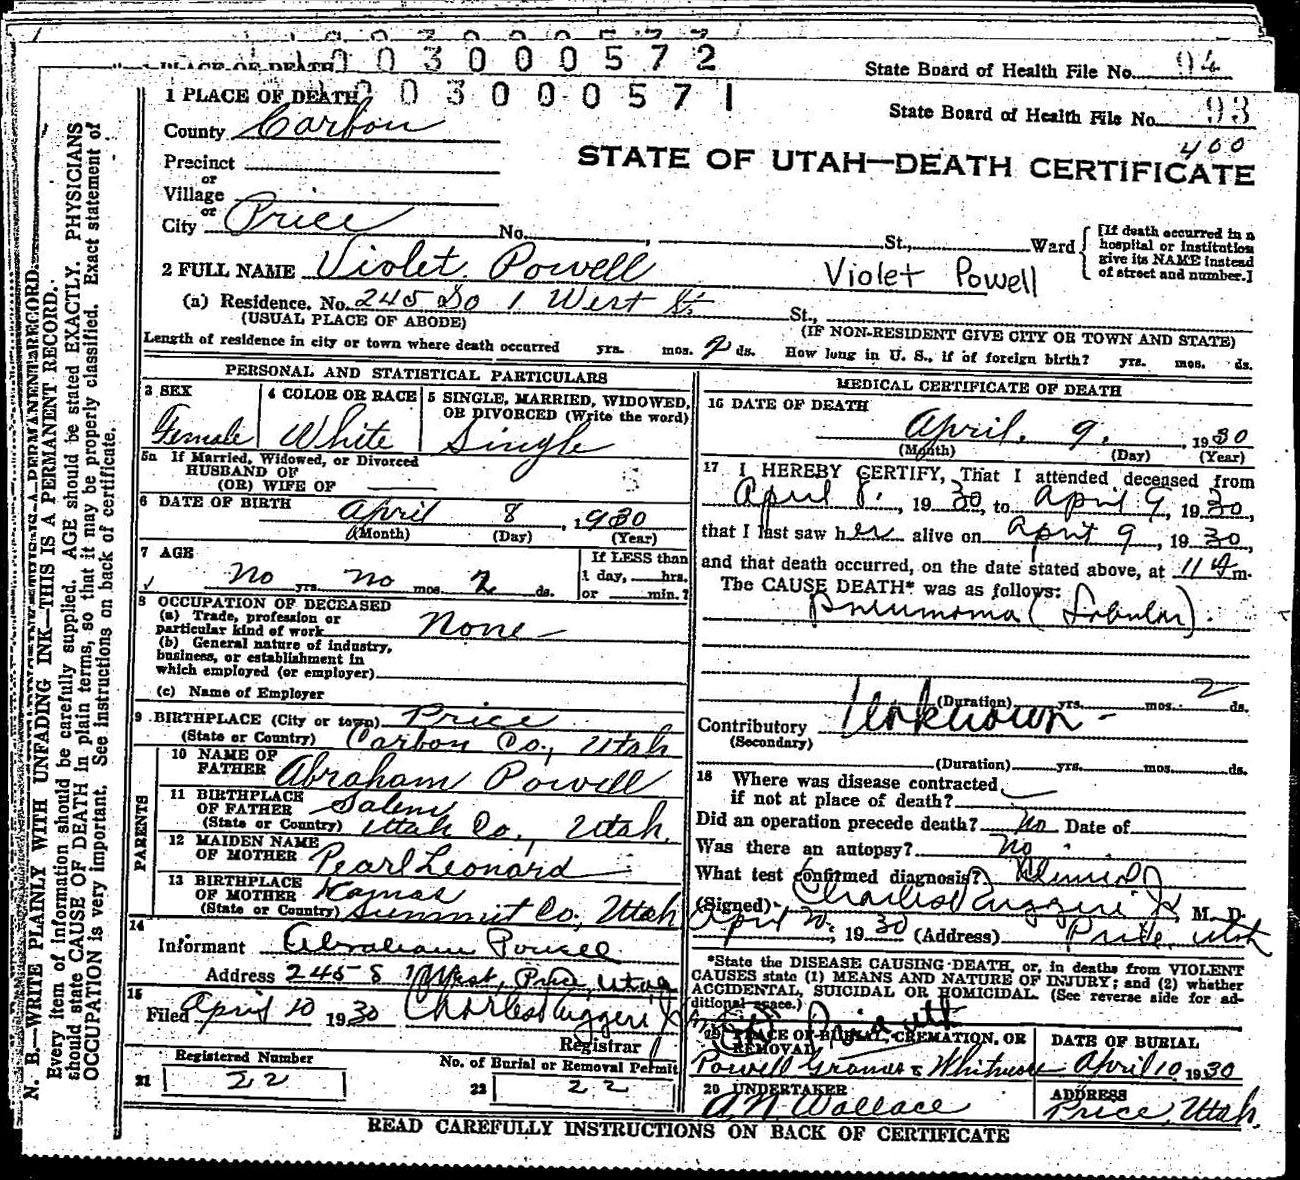 003000572
State Board of Health File No. 94
1 PLACE OF DEATH 003000571
State Board of Health File No. 93
400
County Carbon
STATE OF UTAH—DEATH CERTIFICATE
Precinct
or
Village
or
City Price No. , St., Ward
[If death occurred in a hospital or institution give its NAME instead of street and number.]
2 FULL NAME Violet Powell Violet Powell
(a) Residence. No. 245 So 1 West St. St.,
(USUAL PLACE OF ABODE) (IF NON-RESIDENT GIVE CITY OR TOWN AND STATE)
Length of residence in city or town where death occurred yrs. mos. 2 ds. How long in U. S., if of foreign birth? yrs. mos. ds.
PERSONAL AND STATISTICAL PARTICULARS
3 SEX Female
4 COLOR OR RACE White
5 SINGLE, MARRIED, WIDOWED, OR DIVORCED (Write the word) Single
5a If Married, Widowed, or Divorced
HUSBAND OF
(OR) WIFE OF
6 DATE OF BIRTH April 8, 1930
(Month) (Day) (Year)
7 AGE No yrs. No mos. 2 ds.
If LESS than
1 day, hrs.
or min.?
8 OCCUPATION OF DECEASED
(a) Trade, profession or
particular kind of work None
(b) General nature of industry,
business, or establishment in
which employed (or employer)
(c) Name of Employer
9 BIRTHPLACE (City or town) Price
(State or Country) Carbon Co., Utah
PARENTS
10 NAME OF
FATHER Abraham Powell
11 BIRTHPLACE
OF FATHER Salem
(State or Country) Utah Co., Utah.
12 MAIDEN NAME
OF MOTHER Pearl Leonard
13 BIRTHPLACE
OF MOTHER Kamas
(State or Country) Summit Co., Utah
14
Informant Abraham Powell
Address 245 S 1 West, Price, Utah
15
Filed April 10 1930 Charles Ruggeri Jr
Registrar
Registered Number
21 22
No. of Burial or Removal Permit
22 22
MEDICAL CERTIFICATE OF DEATH
16 DATE OF DEATH
April 9, 1930
(Month) (Day) (Year)
17 I HEREBY CERTIFY, That I attended deceased from
April 8, 1930, to April 9, 1930,
that I last saw her alive on April 9, 1930,
and that death occurred, on the date stated above, at 11 m.
The CAUSE DEATH* was as follows:
Pneumonia (Lobular).
(Duration) yrs. mos. 2 ds.
Contributory Unknown -
(Secondary)
(Duration) yrs. mos. ds.
18 Where was disease contracted
if not at place of death?
Did an operation precede death? No Date of
Was there an autopsy? No
What test confirmed diagnosis? Clinical
(Signed) Charles Ruggeri Jr, M. D.
April 20, 1930 (Address) Price, Utah
*State the DISEASE CAUSING DEATH, or, in deaths from VIOLENT
CAUSES state (1) MEANS AND NATURE OF INJURY; and (2) whether
ACCIDENTAL, SUICIDAL OR HOMICIDAL. (See reverse side for ad-
ditional space.)
19 PLACE OF BURIAL, CREMATION, OR
REMOVAL
DATE OF BURIAL
April 10 1930
20 UNDERTAKER
A N Wallace
ADDRESS
Price, Utah.
READ CAREFULLY INSTRUCTIONS ON BACK OF CERTIFICATE
N. B.—WRITE PLAINLY WITH UNFADING INK—THIS IS A PERMANENT RECORD.
Every item of information should be carefully supplied. AGE should be stated EXACTLY. PHYSICIANS
should state CAUSE OF DEATH in plain terms, so that it may be properly classified. Exact statement of
OCCUPATION is very important. See instructions on back of certificate.